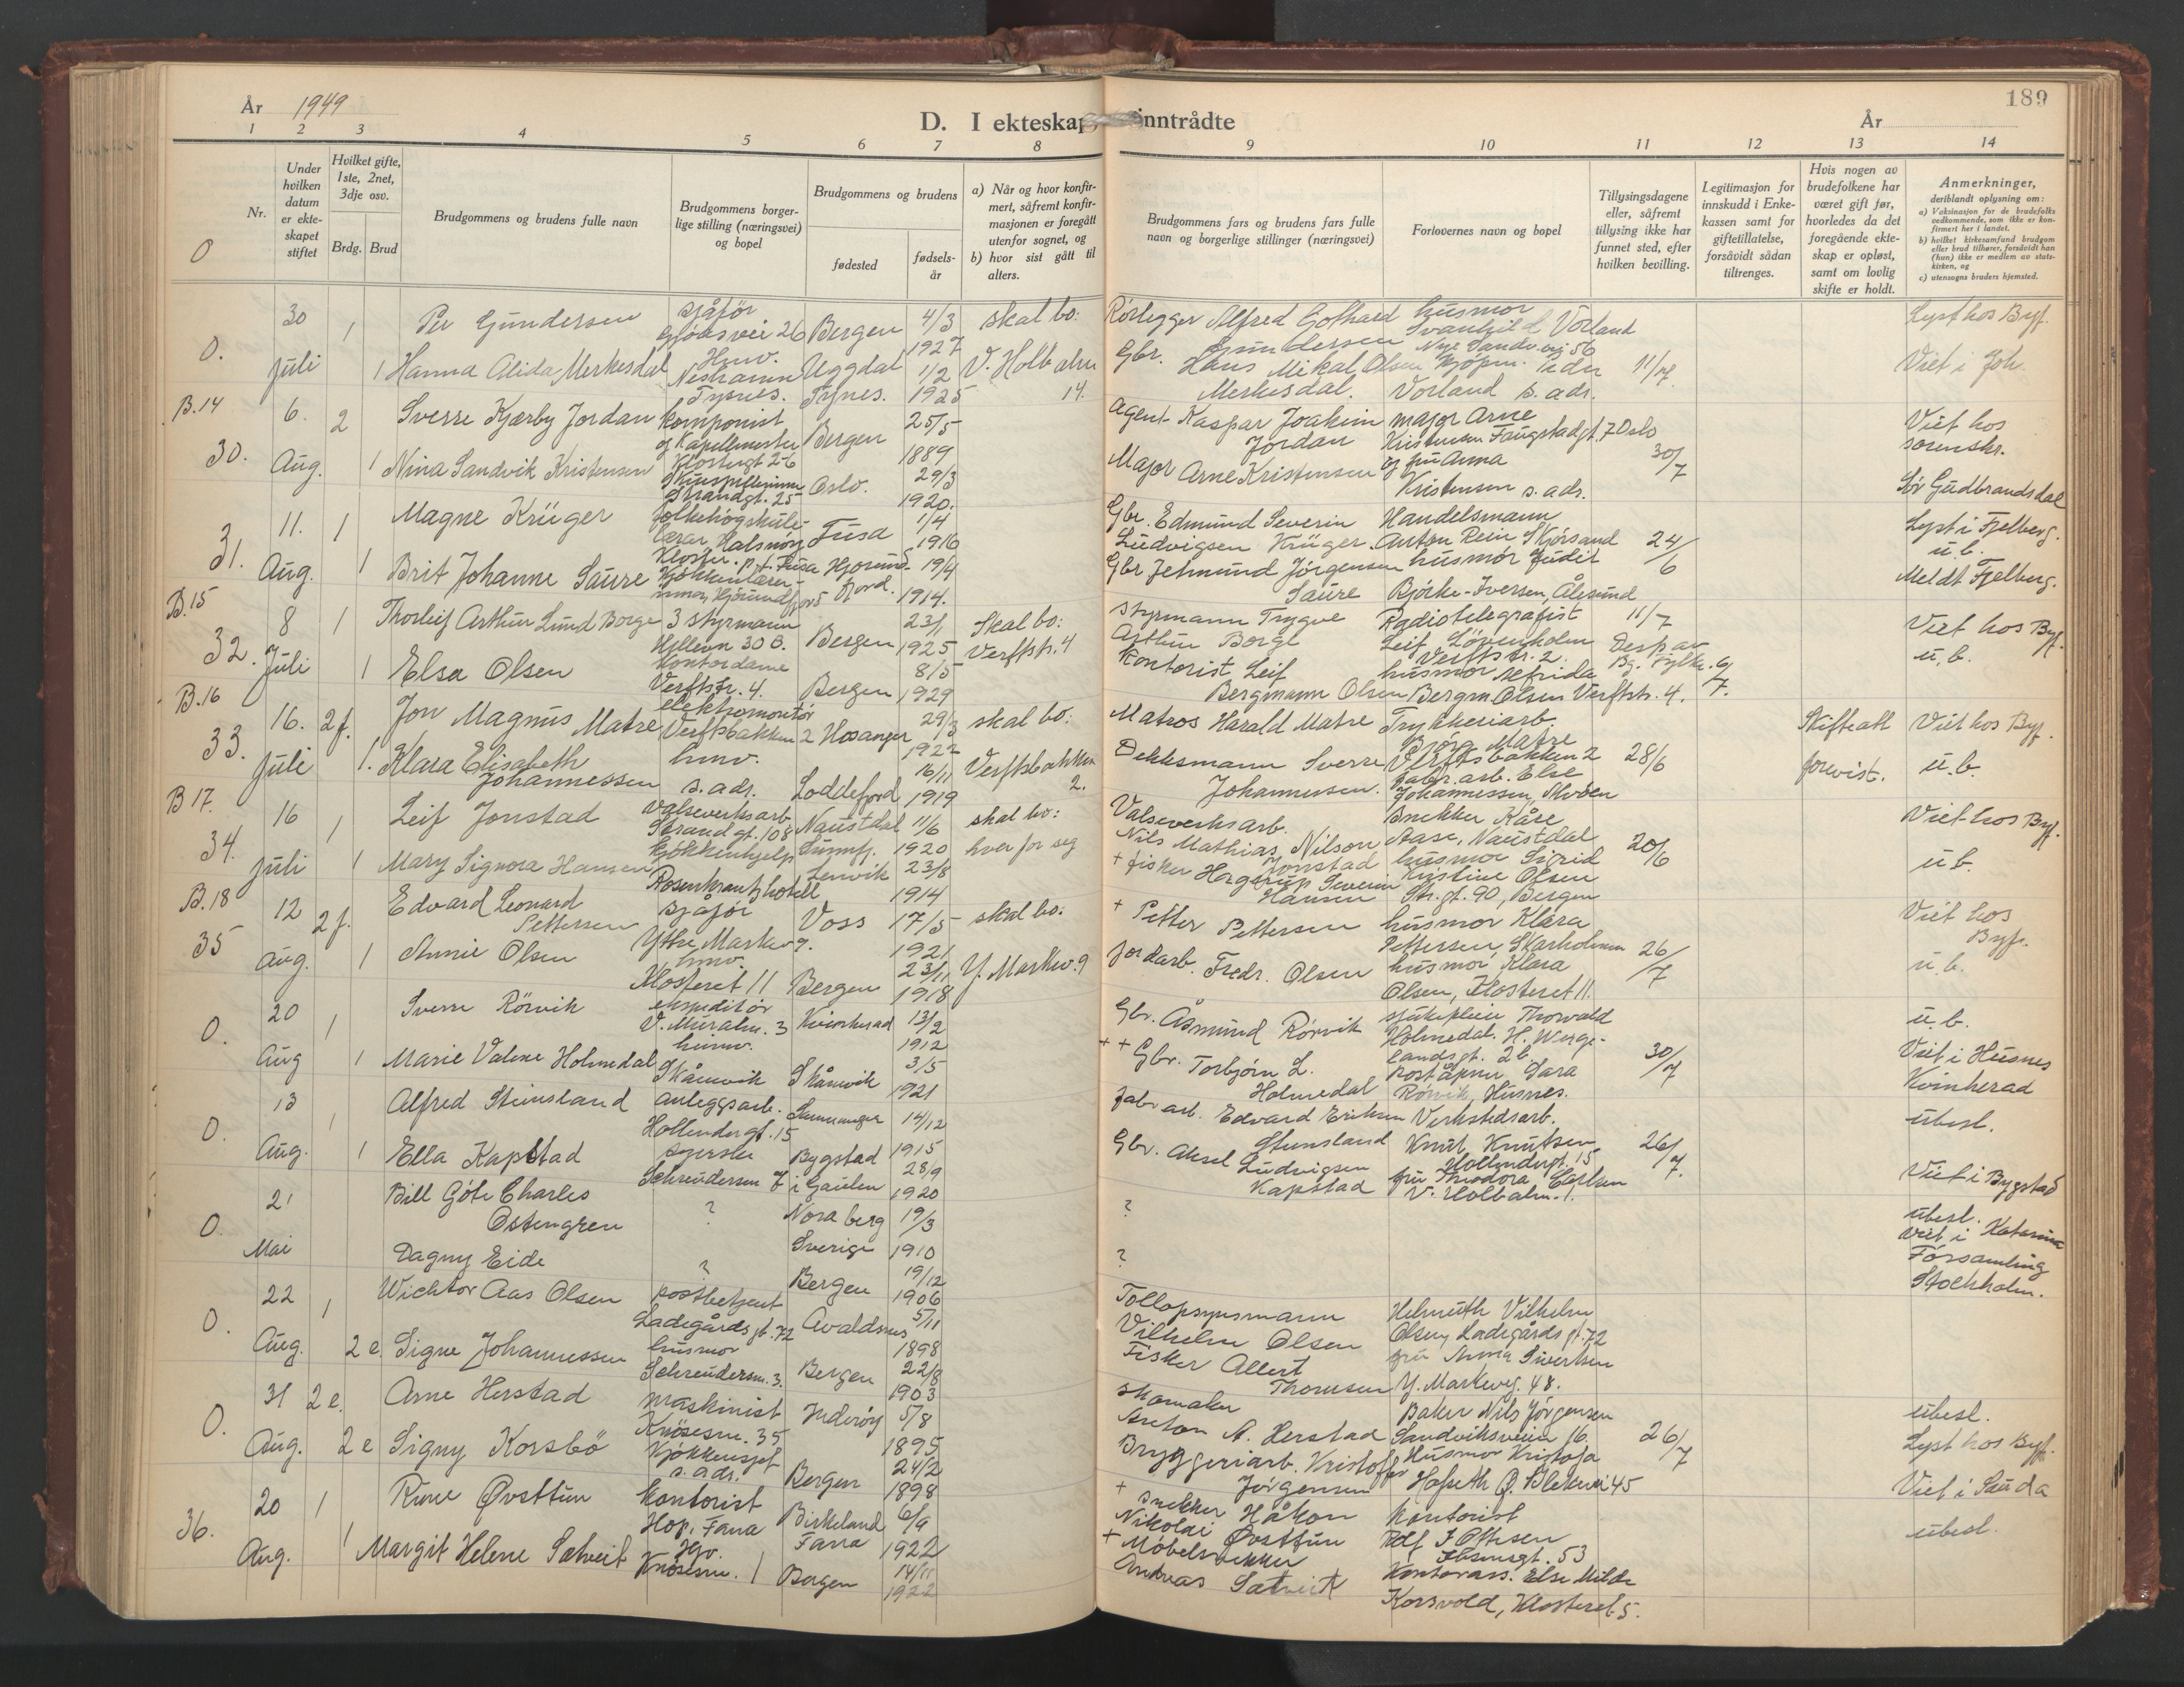 År 1949
D. I ekteskap inntrådte
År
189
1 2 3 4 5 6 7 8 9 10 11 12 13 14
Nr.
Under hvilken datum er ekteskapet stiftet
Hvilket gifte, 1ste, 2net, 3dje osv.
Brdg. Brud
Brudgommens og brudens fulle navn
Brudgommens borger-
lige stilling (næringsvei)
og bopel
Brudgommens og brudens
fødested
fødsels-
år
a) Når og hvor konfir-
mert, såfremt konfir-
masjonen er foregått
utenfor sognet, og
b) hvor sist gått til
alters.
Brudgommens fars og brudens fars fulle
navn og borgerlige stillinger (næringsvei)
Forlovernes navn og bopel
Tillysingsdagene
eller, såfremt
tillysing ikke har
funnet sted, efter
hvilken bevilling.
Legitimasjon for
innskudd i Enke-
kassen samt for
giftetillatelse,
forsåvidt sådan
tiltrenges.
Hvis nogen av
brudefolkene har
været gift før,
hvorledes da det
foregående ekte-
skap er opløst,
samt om lovlig
skifte er holdt.
Anmerkninger,
deriblandt oplysning om:
a) Vaksinasjon for de brudefolks
vedkommende, som ikke er kon-
firmert her i landet.
b) hvilket kirkesamfund brudgom
eller brud tilhører, forsåvidt han
(hun) ikke er medlem av stats-
kirken, og
c) utensogns bruders hjemsted.
O
O. 30 Juli
1 Per Gundersen
sjåfør
Gjøksvei 26 Bergen 4/3 1927
skal bo:
1 Hanna Alida Merkesdal
Hmv.
Neshamn Tysnes.
Uggdal Tysnes. 1/2 1925
V. Holbalm 14.
Rørlegger Alfred Gothard Gundersen
husmor Svanhild Vorland
Nye Sandv.vei 56
Gbr. Hans Mikal Olsen Merkesdal.
Kjøpm. Peder Vorland s. adr.
11/7
Lyst hos Byf.
Viet i Joh.
B.14
30. 6. Aug.
2 Sverre Kjærby Jordan
Komponist
og Kapellmester
Klostergt 26
Bergen 25/5 1889
1 Nina Sandvik Kristensen
Skuespillerinne
Strandgt. 25
Oslo. 29/3 1920.
Agent Kaspar Joakim Jordan
Major Arne Kristensen Faugstadgt. 7 Oslo
Major Arne Kristensen
og fru Anna Kristensen s. adr.
30/7
Viet hos
sorenskr.
Sør Gudbrandsdal
31. 11. Aug.
1 Magne Krüger
folkehøgskule-
lærar, Halsnøy
Kloster. p.t. Fusa
Fusa 1/4 1916
1 Brit Johanne Saure
Kjøkkenlærer-
inne, Hjørundfjord
Hjørund-
fjord. 19/4 1914.
Gbr. Edmund Severin
Ludvigsen Krüger.
Handelsmann
Anton Rein Skjørsand
Gbr Jetmund Jørgensen
Saure
husmor Judit
Bjørke-Iversen, Ålesund
24/6
Lyst i Fjelberg.
u. b.
Meldt Fjelberg.
B.15
32. 8 Juli
1 Thorleif Arthur Lund Borge
3 styrmann
Hellevn 30 B.
Bergen 23/1 1925
Skal bo:
Verftstr. 4
1 Elsa Olsen
Kontordame
Verftstr. 4.
Bergen 8/5 1929
Styrmann Trygve
Arthur Borge
Radiotelegrafist
Leif Løvenholm
Verftstr. 2.
Kontorist Leif
Bergmann Olsen
husmor Alfrida
Bergm. Olsen Verftstr. 4.
11/7
Desp av
Bg. Fylke. 6/7.
Viet hos Byf.
u. b.
B.16
33. 16. Juli
2 f. Jon Magnus Matre
elektromontør
Verftsbakken 2
Hosanger 29/3 1922
skal bo:
Verftsbakken 2.
1. Klara Elisabeth
Johannessen
hmv.
s. adr.
Loddefjord 16/11 1919
Matros Harald Matre
Trykkeriarb.
Bjørg Matre
Verftsbakken 2
Dekksmann Sverre
Johannessen.
fabr. arb. Else
Johannessen, Alvøen
28/6
Skifteatt
forevist.
Viet hos Byf.
u. b.
B 17.
34. 16 Juli
1 Leif Jonstad
Valseverksarb.
Strandgt. 108
Naustdal
Sunnfj. 11/6 1920
skal bo:
hver for seg
1 Mary Signora Hansen
Kjøkkenhjelp
Rosenkrantz hotell
Lenvik 23/8 1914
Valseverksarb.
Nils Mathias Nilson
Jonstad
Snekker Kåre
Aase, Naustdal
+ fisker Hagerup Severin
Hansen
husmor Sigrid
Kristine Olsen
Str.gt. 90, Bergen
20/6
Viet hos Byf.
u b.
B.18
35 12 aug.
2 f. Edvard Leonard
Pettersen
sjåfør
Ytre Markev 9.
Voss 17/5 1921
skal bo:
Y. Markev. 9
1 Annie Olsen
hmv.
Klosteret 11
Bergen 23/11 1918
+ Petter Pettersen
husmor Klara
Pettersen, Skarholmen
Jordarb. Fredr. Olsen
husmor Klara
Olsen, Klosteret 11.
26/7
Viet hos
Byf.
u. b.
O. 20 Aug
1 Sverre Rörvik
ekspeditør
V. Muralm. 3
Kvinherad 13/2 1912
1 Marie Valine Holmedal
husm.
Skånevik
Skånevik 3/5 1921
Gbr. Åsmund Rörvik
sjukepleier Thorvald
Holmedal. H. Werge-
landsgt. 2b.
+ + Gbr. Torbjørn L.
Holmedal
Poståpner Sara
Rörvik, Husnes.
30/7
u. b.
Viet i Husnes
Kvinherad
O. 13 Aug.
1 Alfred Steinsland
anleggsarb.
Hollendergt. 15
Samnanger 14/12 1915
1 Ella Kapstad
syerske
Schreudersm 7
Bygstad
i Gaulen 28/9 1920
fabr arb. Edvard Eriksen
Steinsland
Verkstedsarb.
Knut Knutsen
Hollendergt. 15
Gbr. Aksel Ludvigsen
Kapstad
fru Theodora Carlsen
V. Holbalm. 1.
26/7.
ubesl.
Viet i Bygstad
O. 21 Mai
Bill Göte Charles
Östengren
?
Nora berg
Sverige 19/3 1910
Dagny Eide
?
Bergen 19/12 1906
?
?
ubesl.
viet i Katarina
Församling
Stockholm.
O. 22 Aug.
1 Wicktor Aas Olsen
postbetjent
Ladegårdsgt. 72
Avaldsnes 5/11 1898
2 e. Signe Johannessen
husmor
Schreudersm. 3.
Bergen 22/8 1903
Tollopsynsmann
Vilhelm Olsen
Helmuth Vilhelm
Olsen, Ladegårdsgt. 72
Fisker Allert
Thomsen
fru Anna Sivertsen
Y. Markeveg. 48.
O. 31 Aug.
2 e. Arne Herstad
maskinist
Knøsesm. 35
Inderøy 5/8 1895
2 e Signy Korsbö
Kjøkkensjef
s. adr.
Bergen 24/2 1898
skomaker
Anton A. Herstad
Baker Nils Jørgensen
Sandviksveien 16.
Bryggeriarb. Kristoffer
Jørgensen
Husmor Kristofa
Hofseth Ø. Blekevei 45
26/7
ubesl.
Lyst hos Byf.
36. 20 Aug.
1 Rune Øvsttun
Kontorist
Hop, Fana
Birkeland
Fana 6/9 1922
1 Margit Helene Sætveit
Hv.
Knøsesm. 1
Bergen 14/11 1922
+ snekker Håkon
Nikolai Øvsttun
Kontorist
Rolf J Ottesen
Ibsensgt. 53
+ Møbelsnekker
Andreas Sætveit
Kontorass. Else Milde
Korsvold, Klosteret 5.
Viet i Sauda
ubesl.